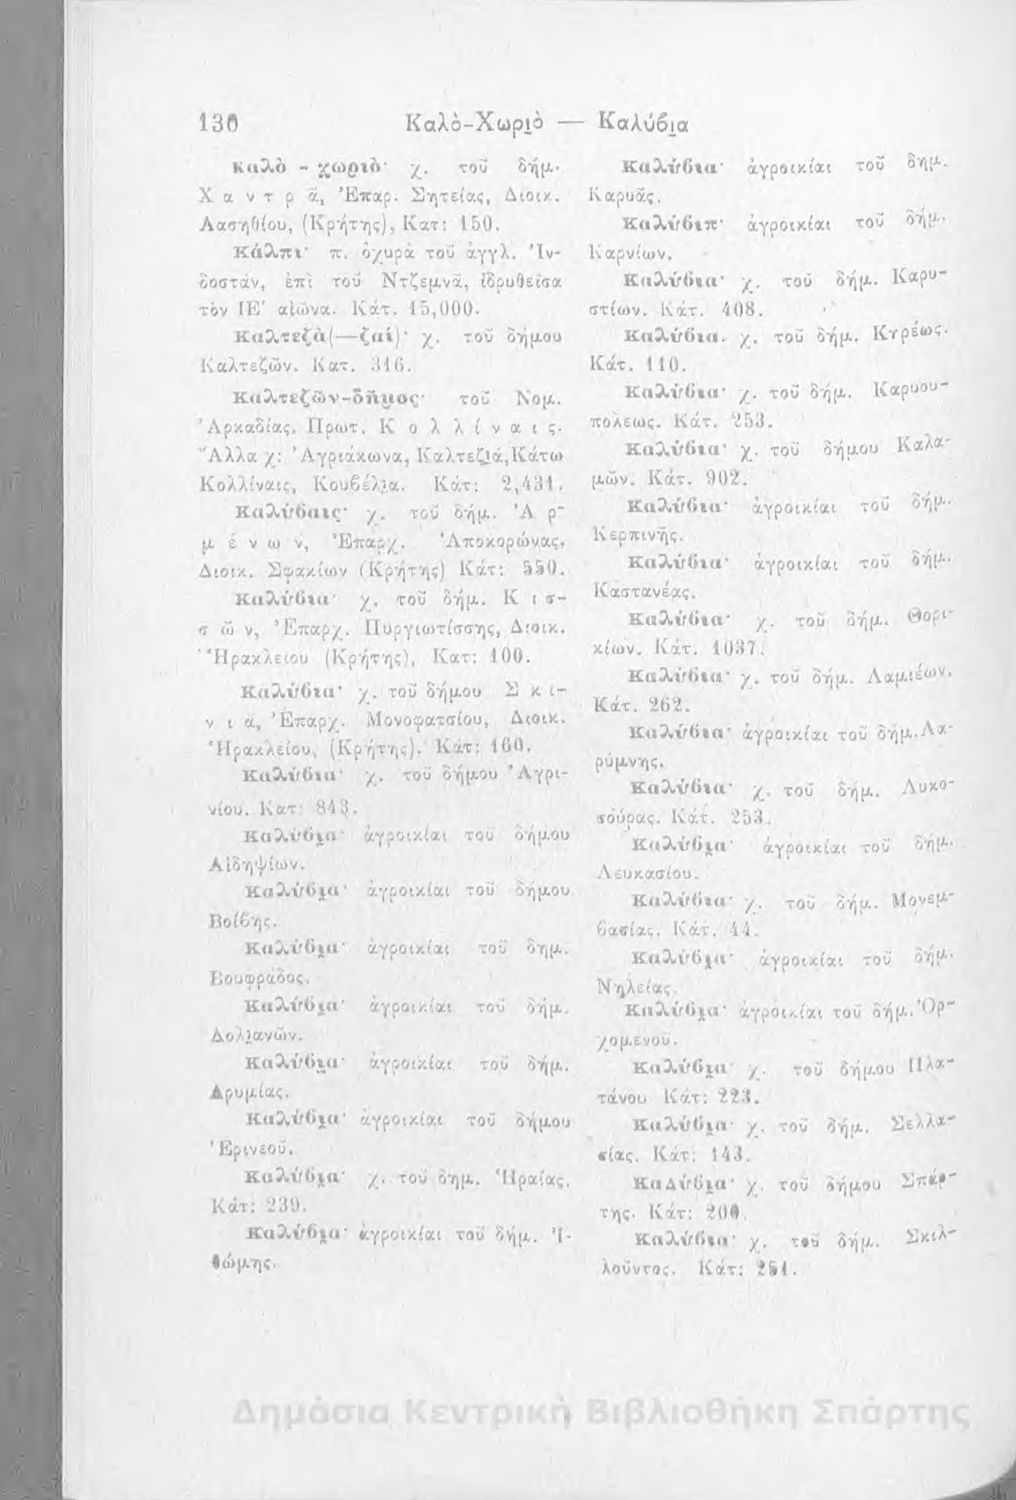 130 Καλὸ-Χωρι̯ὸ — Καλύβι̯α
Καλὸ - χωριὸ· χ. τοῦ δήμ.
Χαντρᾶ, Ἐπαρ. Σητείας, Διοικ.
Λασηθίου, (Κρήτης), Κατ: 150.
Κάλπι· π. ὀχυρὰ τοῦ ἀγγλ. Ἰν-
δοστάν, ἐπὶ τοῦ Ντζεμνᾶ, ἱδρυθεῖσα
τὸν ΙΕ' αἰῶνα. Κάτ. 15,000.
Καλτεζὰ(—ζαί)· χ. τοῦ δήμου
Καλτεζῶν. Κατ. 316.
Καλτεζῶν-δῆμος· τοῦ Νομ.
Ἀρκαδίας. Πρωτ. Κολλίναις.
Ἄλλα χ: Ἀγριάκωνα, Καλτεζι̯ά, Κάτω
Κολλίναις, Κουβέλι̯α. Κάτ: 2,431.
Καλύβαις· χ. τοῦ δήμ. Ἀρ-
μένων, Ἐπαρχ. Ἀποκορώνας,
Διοικ. Σφακίων (Κρήτης) Κάτ: 550.
Καλύβια· χ. τοῦ δήμ. Κισ-
σῶν, Ἐπαρχ. Πυργιωτίσσης, Διοικ.
Ἡρακλείου (Κρήτης), Κατ: 100.
Καλύβια· χ. τοῦ δήμου Σκι-
νιά, Ἐπαρχ. Μονοφατσίου, Διοικ.
Ἡρακλείου, (Κρήτης). Κάτ: 160.
Καλύβια· χ. τοῦ δήμου Ἀγρι-
νίου. Κατ: 843.
Καλύβι̯α· ἀγροικίαι τοῦ δήμου
Αἰδηψίων.
Καλύβι̯α· ἀγροικίαι τοῦ δήμου
Βοίβης.
Καλύβι̯α· ἀγροικίαι τοῦ δημ.
Βουφράδος.
Καλύβι̯α· ἀγροικίαι τοῦ δήμ.
Δολι̯ανῶν.
Καλύβι̯α· ἀγροικίαι τοῦ δήμ.
Δρυμίας.
Καλύβι̯α· ἀγροικίαι τοῦ δήμου
Ἐρινεοῦ.
Καλύβι̯α· χ. τοῦ δημ. Ἡραίας.
Κάτ: 239.
Καλύβι̯α· ἀγροικίαι τοῦ δήμ. Ἰ-
θώμης.
Καλύβια· ἀγροικίαι τοῦ δημ.
Καρυᾶς.
Καλύβιπ· ἀγροικίαι τοῦ δήμ.
Καρνίων.
Καλύβια· χ. τοῦ δήμ. Καρυ-
στίων. Κάτ. 408.
Καλύβια. χ. τοῦ δήμ. Κυρέως.
Κάτ. 110.
Καλύβια· χ. τοῦ δήμ. Καρυου-
πόλεως. Κάτ. 253.
Καλύβια· χ. τοῦ δήμου Καλα-
μῶν. Κάτ. 902.
Καλύβια· ἀγροικίαι τοῦ δήμ.
Κερπινῆς.
Καλύβια· ἀγροικίαι τοῦ δήμ.
Καστανέας.
Καλύβια· χ. τοῦ δήμ. Θορι-
κίων. Κάτ. 1037.
Καλύβια· χ. τοῦ δήμ. Λαμιέων.
Κάτ. 262.
Καλύβια· ἀγροικίαι τοῦ δήμ. Λα-
ρύμνης.
Καλύβια· χ. τοῦ δήμ. Λυκο-
σούρας. Κάτ. 253.
Καλύβι̯α· ἀγροικίαι τοῦ δήμ.
Λευκασίου.
Καλύβια· χ. τοῦ δήμ. Μονεμ-
βασίας. Κάτ. 44.
Καλύβι̯α· ἀγροικίαι τοῦ δήμ.
Νηλείας.
Καλύβι̯α· ἀγροικίαι τοῦ δήμ. Ὀρ-
χομενοῦ.
Καλύβι̯α· χ. τοῦ δήμου Πλα-
τάνου Κάτ: 223.
Καλύβι̯α· χ. τοῦ δήμ. Σελλα-
σίας. Κάτ: 143.
Καλύβι̯α· χ. τοῦ δήμου Σπάρ-
της. Κάτ: 200.
Καλύβια· χ. τοῦ δήμ. Σκιλ-
λοῦντος. Κάτ: 251.
Δημόσια Κεντρική Βιβλιοθήκη Σπάρτης